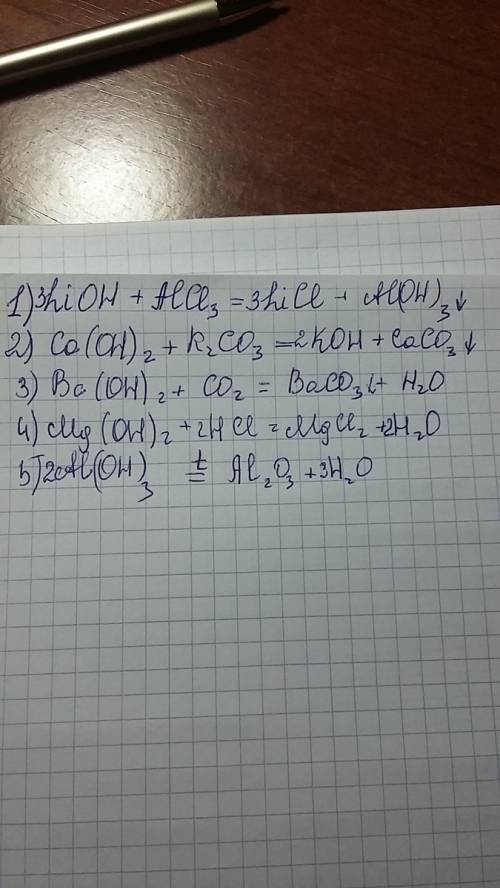 1) 3LiOH + AlCl₃ = 3LiCl + Al(OH)₃↓
2) Ca(OH)₂ + K₂CO₃ = 2KOH + CaCO₃↓
3) Ba(OH)₂ + CO₂ = BaCO₃↓ + H₂O
4) Mg(OH)₂ + 2HCl = MgCl₂ + 2H₂O
5) 2Al(OH)₃ t= Al₂O₃ + 3H₂O